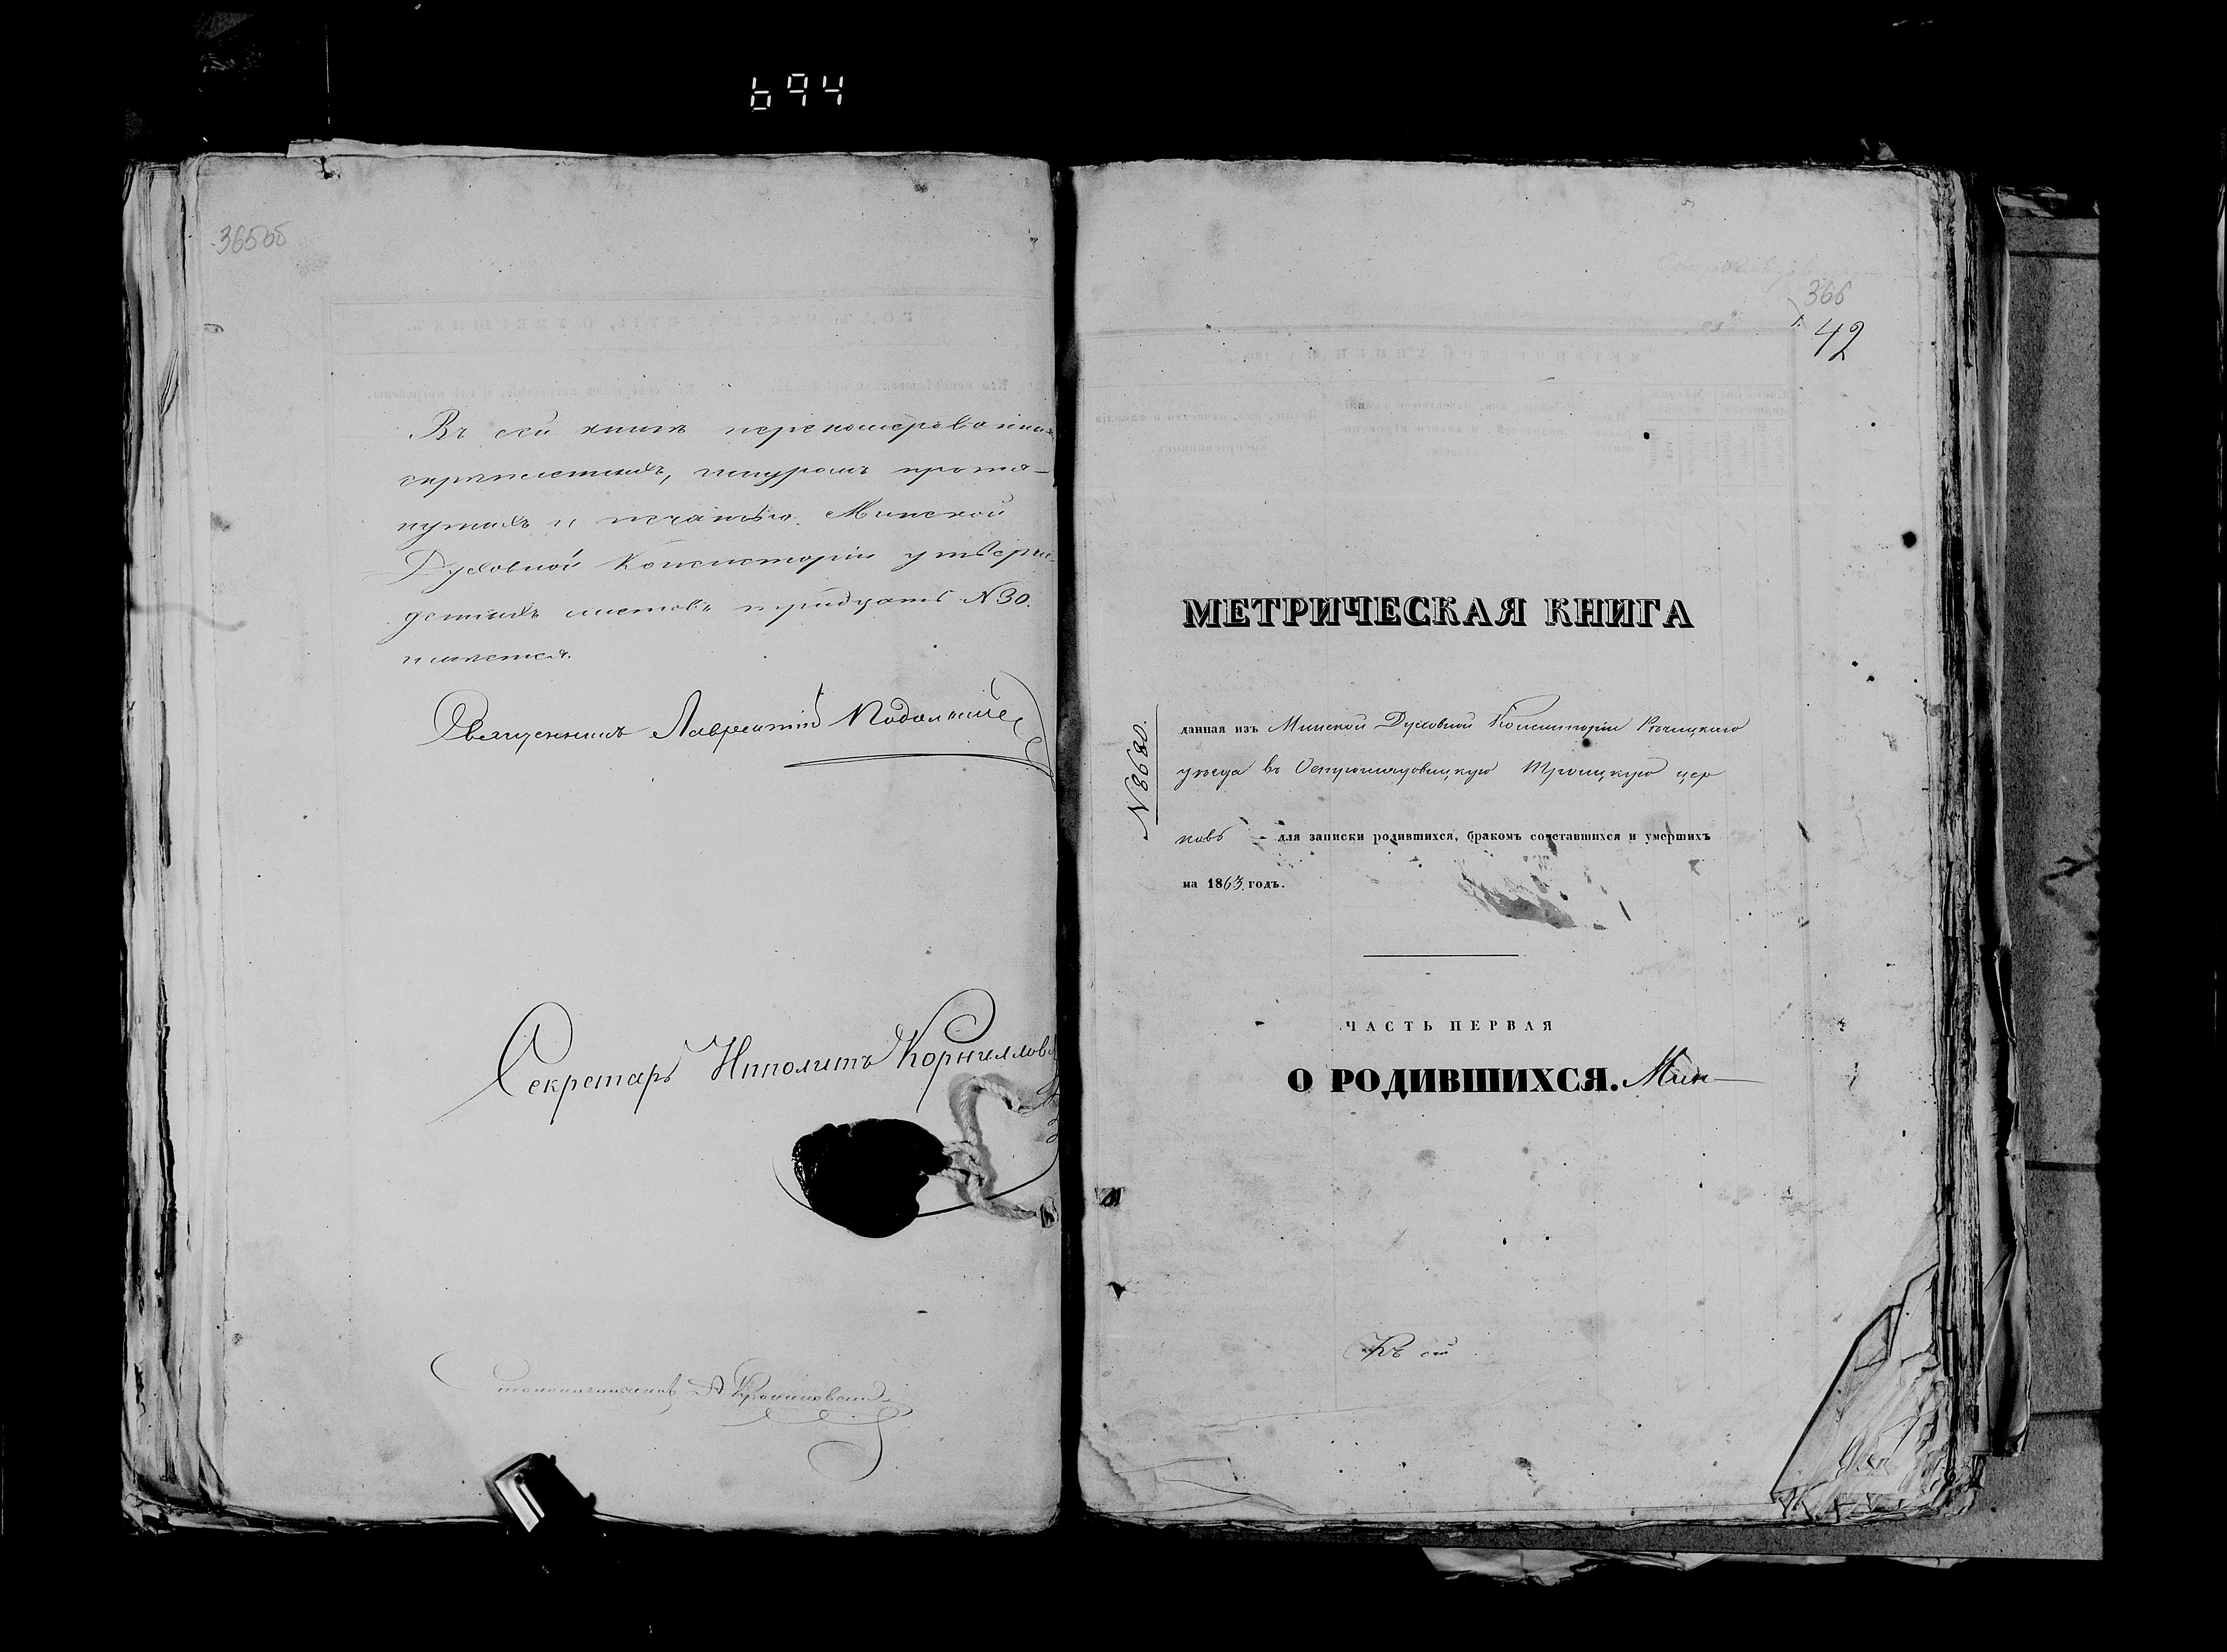 694
365об
Въ сей книгѣ переномерованныхъ
скрѣпленныхъ, шнуромъ протя-
нутыхъ и печатью Минской
Духовной Консисторіи утверж-
денныхъ листовъ тридцать N 30.
имѣется.
Священникъ Лаврентій
Секретарь Ипполитъ Корниллов
Столоначальникъ А.
366
42
МЕТРИЧЕСКАЯ КНИГА
N 8680.
данная изъ Минской Духовной Консисторіи Рѣчицкаго
уѣзда въ Остроглядовицкую Троицкую цер
ковь для записки родившихся, бракомъ сочетавшихся и умершихъ
на 1863 годъ.
ЧАСТЬ ПЕРВАЯ
О РОДИВШИХСЯ. Мин-
Къ сей